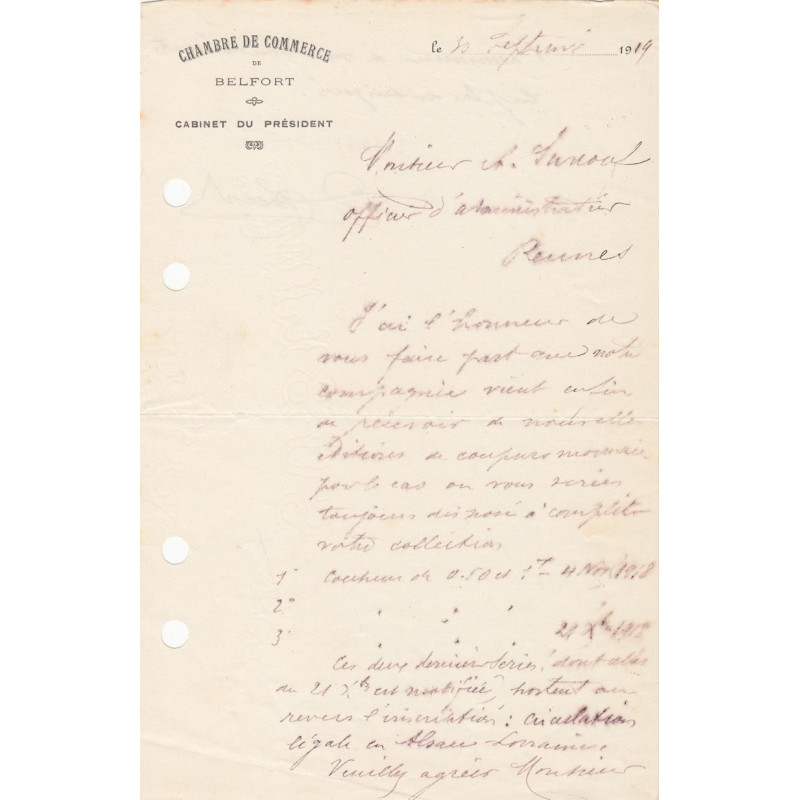 CHAMBRE DE COMMERCE
DE
BELFORT
CABINET DU PRÉSIDENT
le Septembre 1919
Monsieur A.
officier d'administration
Rennes
J'ai l'honneur de
vous faire part que notre
compagnie vient enfin
de recevoir de nouvelles
éditions de coupures monnaie
pour le cas où vous seriez
toujours disposé à compléter
votre collection
1° Coupures de 0.50 et 1f - 4 Nov 1918
2° " " "
3° " 21 Xbre 1918
Ces deux dernières séries, dont celle
du 21 Xbre est modifiée, portent au
revers l'inscription : circulation
légale en Alsace-Lorraine.
Veuillez agréer Monsieur